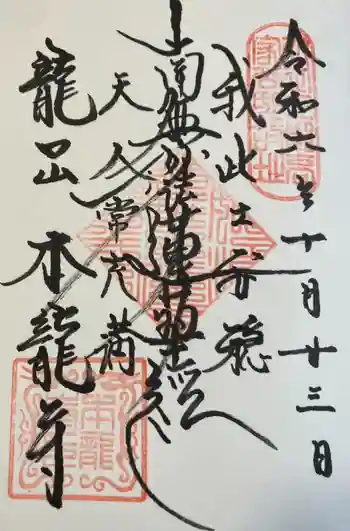 令和六年十月十三日
我此土安穏
南無妙法蓮華経
天人常充満
龍口山本龍寺